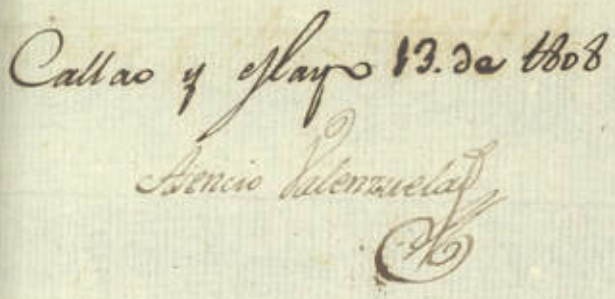 Callao y Mayo 13. de 1808
Asencio Valenzuela